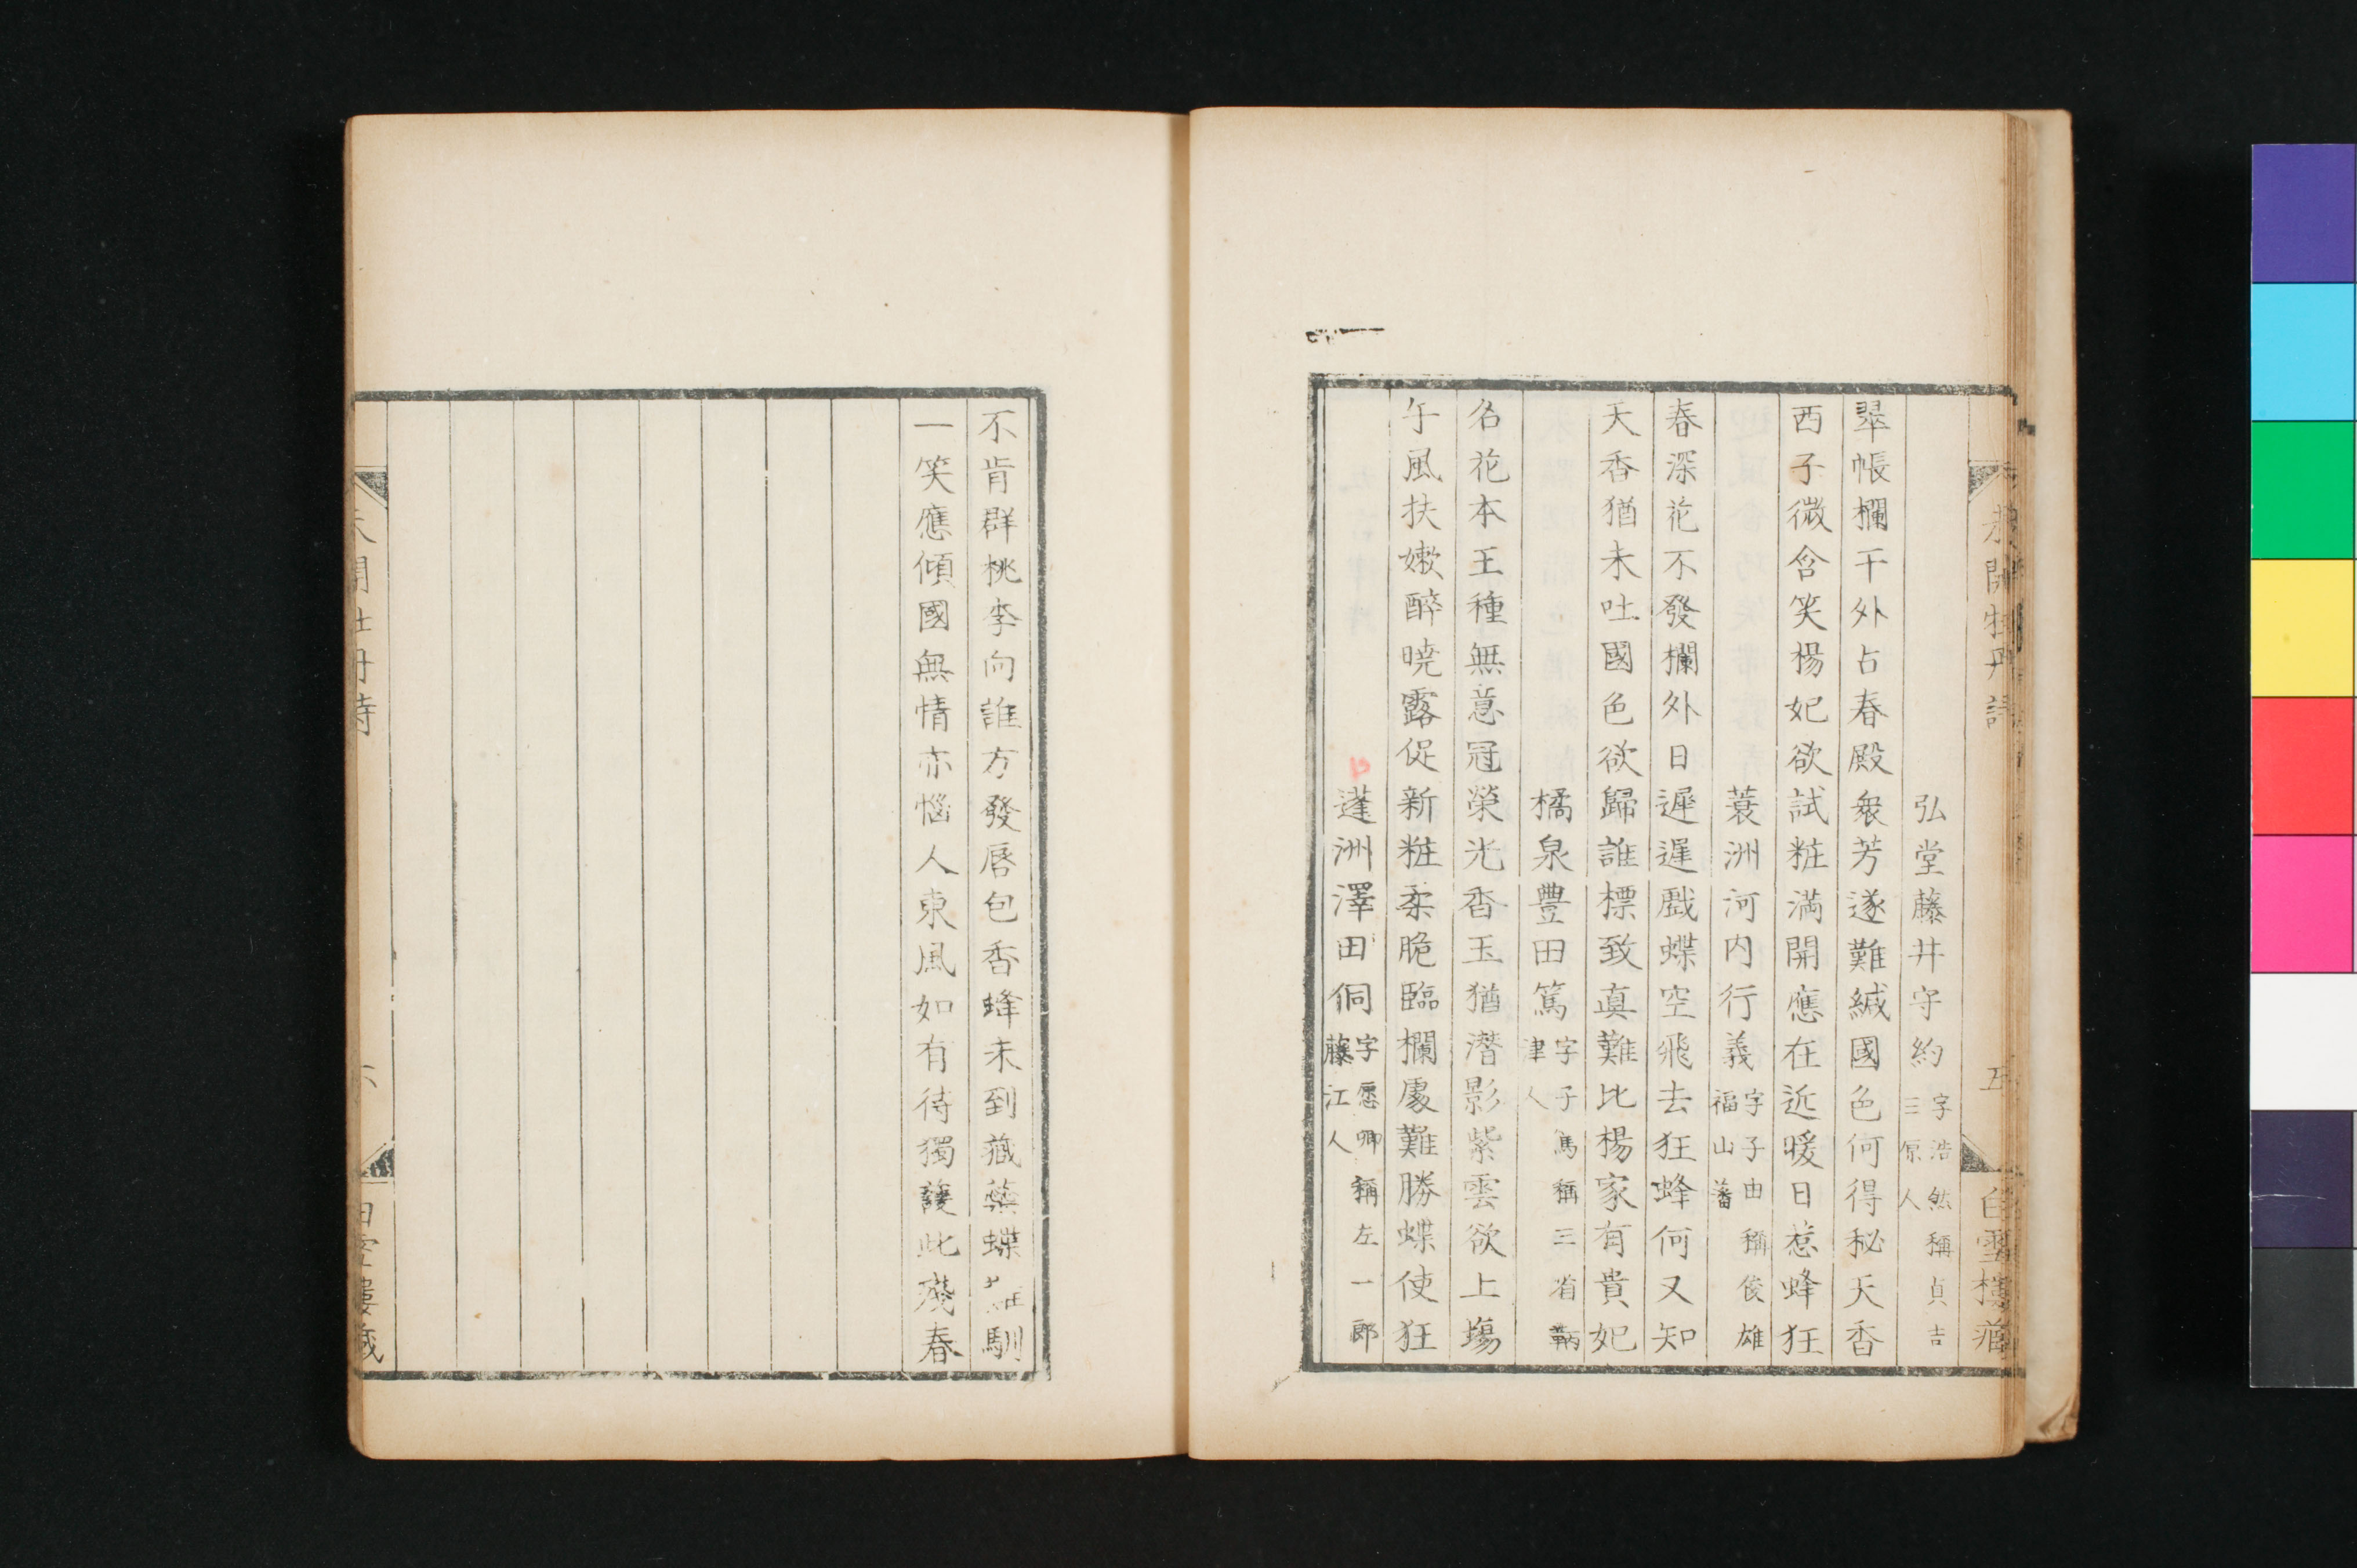 未開牡丹詩 五 白雪樓藏
弘堂藤井守約 字浩然稱貞吉三原人
翠帳欄干外占春殿衆芳遂難緘國色何得秘天香
西子微含笑楊妃欲試粧滿開應在近暖日惹蜂狂
蓑洲河内行義 字子由稱俊雄福山藩
春深花不發欄外日遲遲戲蝶空飛去狂蜂何又知
天香猶未吐國色欲歸誰標致真難比楊家有貴妃
橘泉豊田篤 字子馬稱三省鞆津人
名花本王種無意冠榮光香玉猶潛影紫雲欲上場
午風扶嫩醉曉露促新粧柔脆臨欄處難勝蝶使狂
蓬洲澤田侗 字愿卿稱左一郎藤江人
不肯群桃李向誰方發唇包香蜂未到藏蘂蝶難馴
一笑應傾國無情亦惱人東風如有待獨護此殘春
未開牡丹詩 六 白雪樓藏